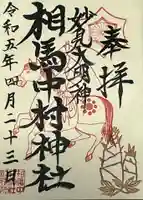 奉拝
妙見大明神
相馬中村神社
令和五年四月二十三日